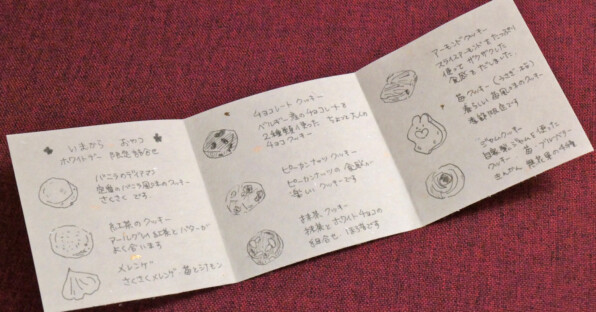 いえから おやつ
ホワイトデー 限定詰合せ
バニラのディアマン
定番のバニラ風味のクッキー
さくさくです
紅茶のクッキー
アールグレイの紅茶とバターが
よく合います
メレンゲ
さくさくメレンゲ 苺とレモン
チョコレート クッキー
ベルギー産のチョコレートを
2種類使った ちょっと大人の
チョコクッキー
ピーカンナッツクッキー
ピーカンナッツの食感が
楽しいクッキーです
抹茶クッキー
抹茶とホワイトチョコの
組合せ
アーモンドクッキー
スライスアーモンドをたっぷり
使って ザクザクした
食感をだしました
苺クッキー (うさぎ
春らしい 苺風味のクッキー
季節限定です
ジャムクッキー
使った
クッキー 苺・ブルーベリー